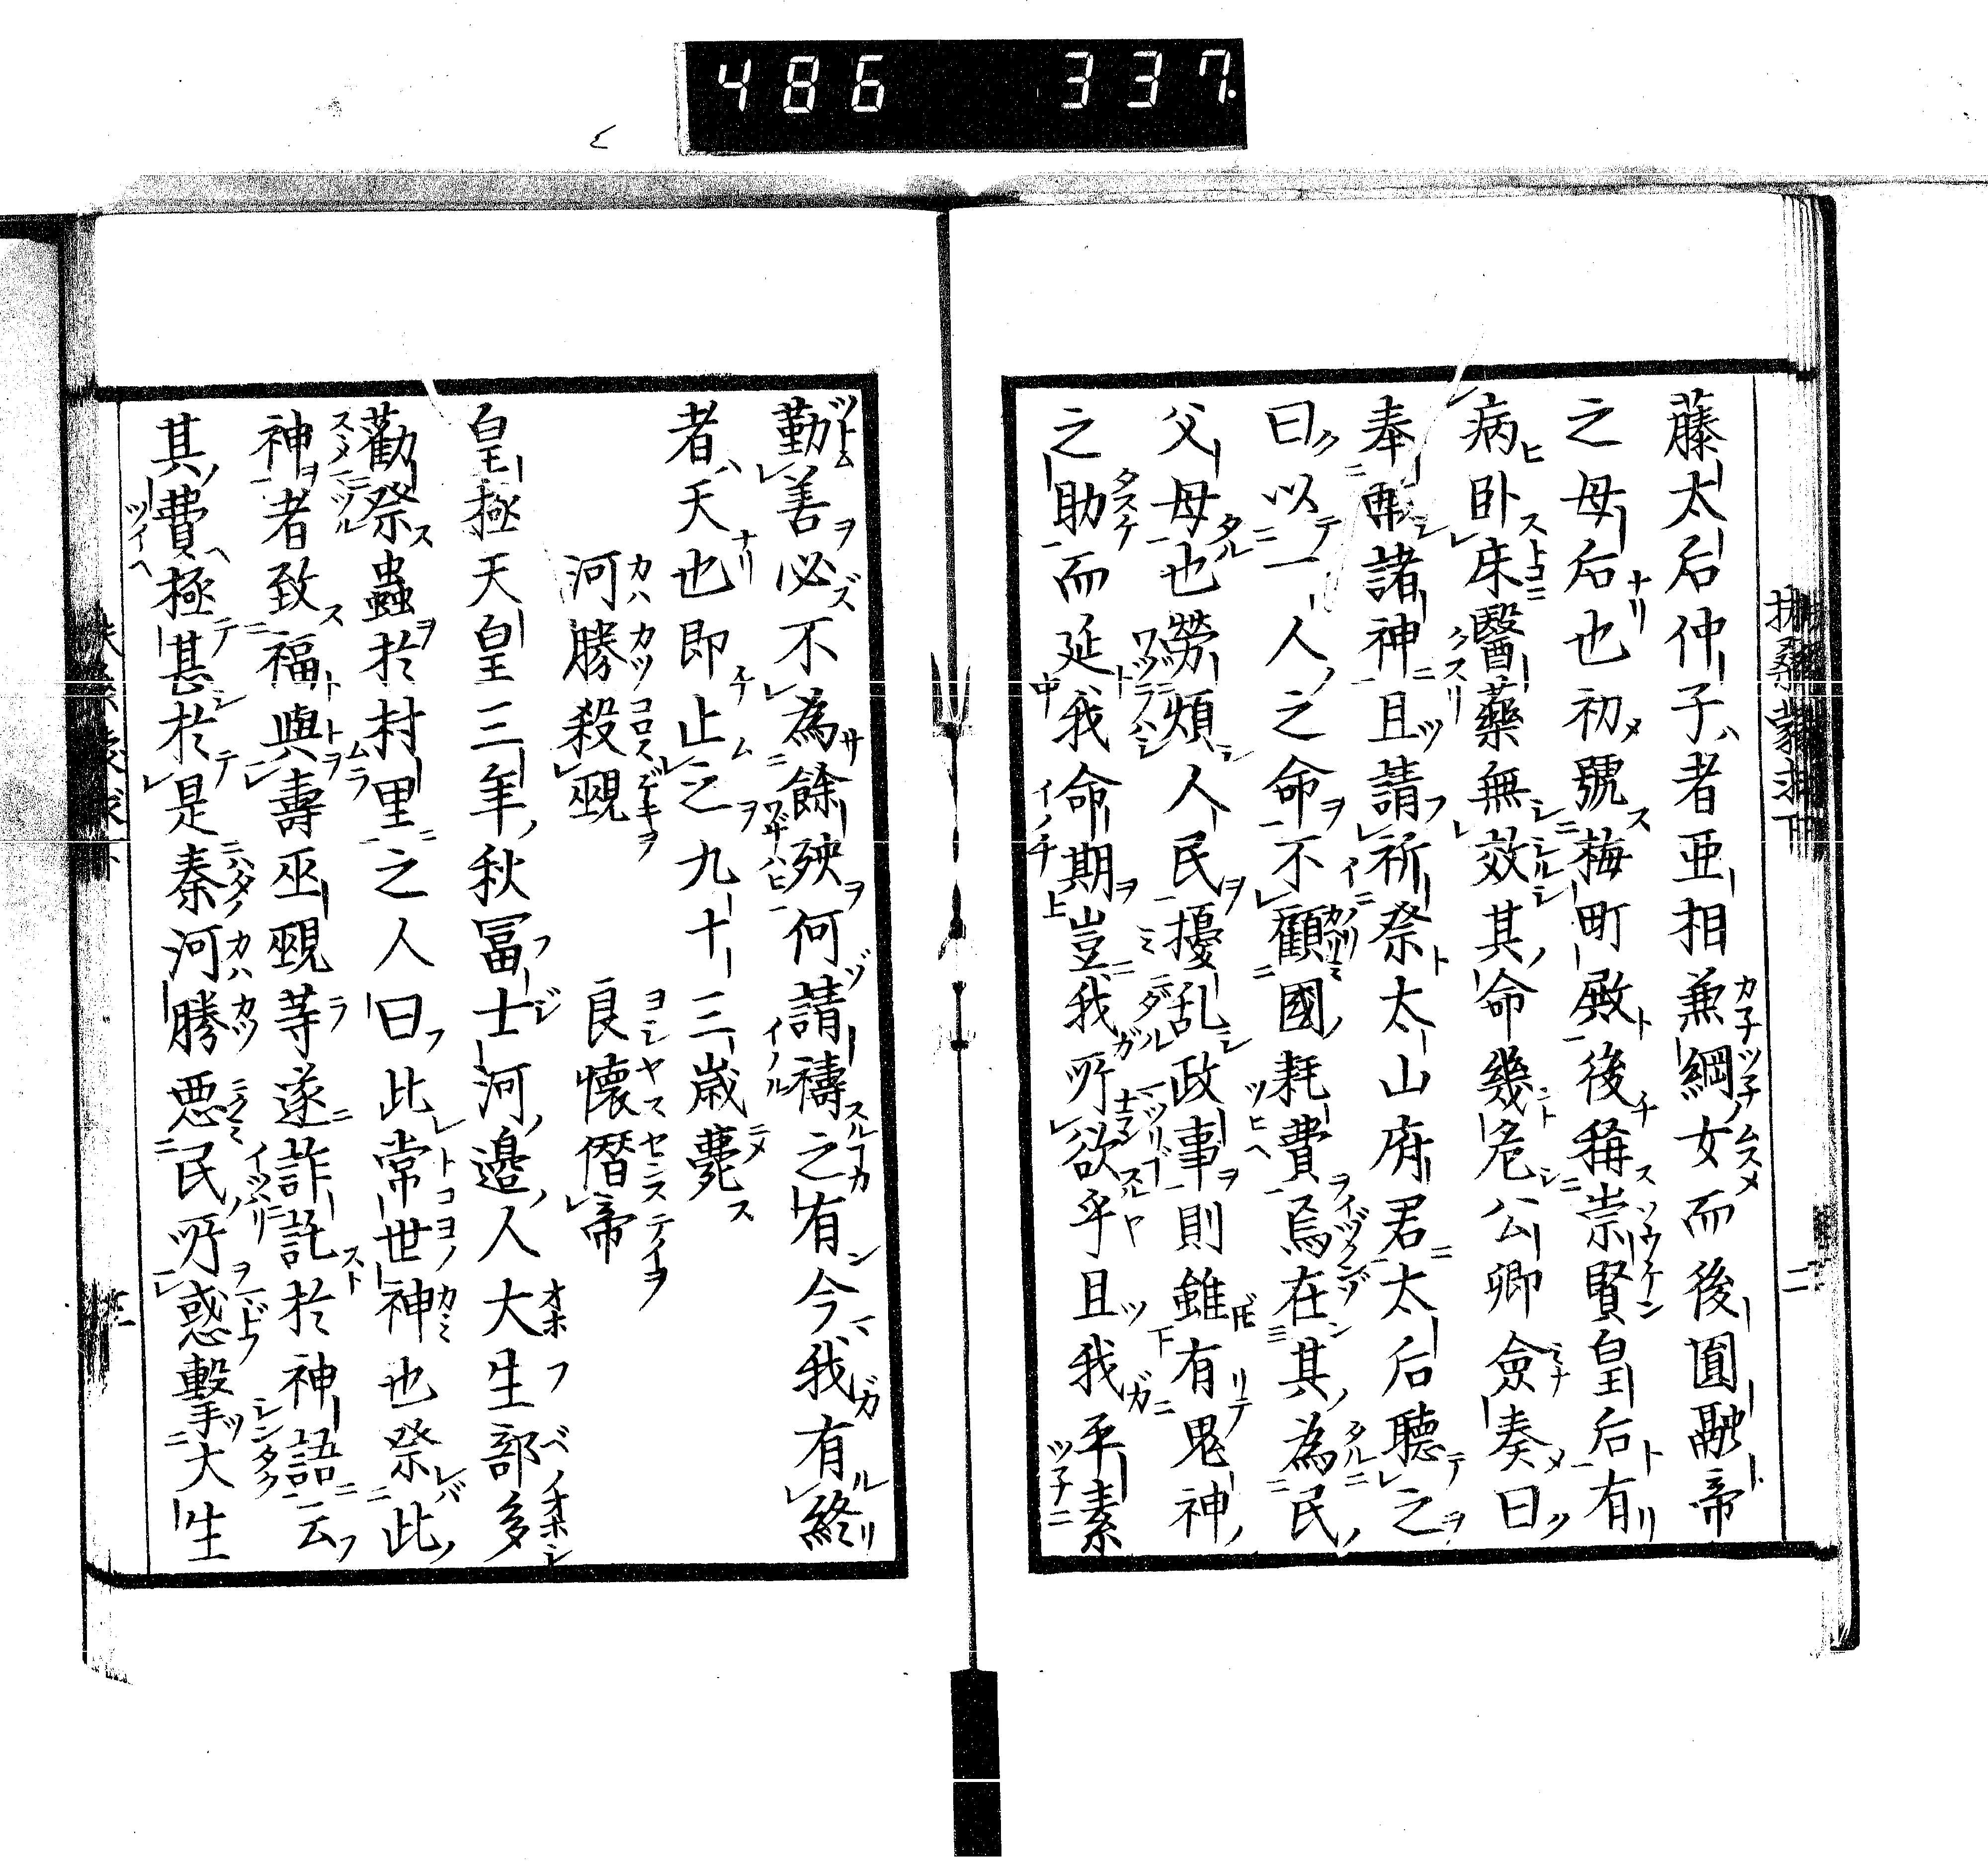 486 337
扶桑蒙求下
二
藤太后仲子者亜相兼綱女而後圓融帝
之母后也初號梅町殿後稱崇賢皇后有
病臥床醫藥無效其命幾危公卿僉奏曰
奉 諸神且請祈祭太山府君太后聴之
曰以一人之命不顧國耗費烏在其為民
父母也勞煩人民擾乱政事則雖有鬼神
之助而延我命期豈我所欲乎且我平素
勤善必不為餘殃何請禱之有今我有終
者天也即止之九十三歳薨
河勝殺覡 良懐僭帝
皇極天皇三年秋冨士河邉人大生部多
勸祭蟲於村里之人曰此常世神也祭此
神者致福與壽巫覡等遂詐託於神語云
其費極甚於是秦河勝悪民所惑撃大生